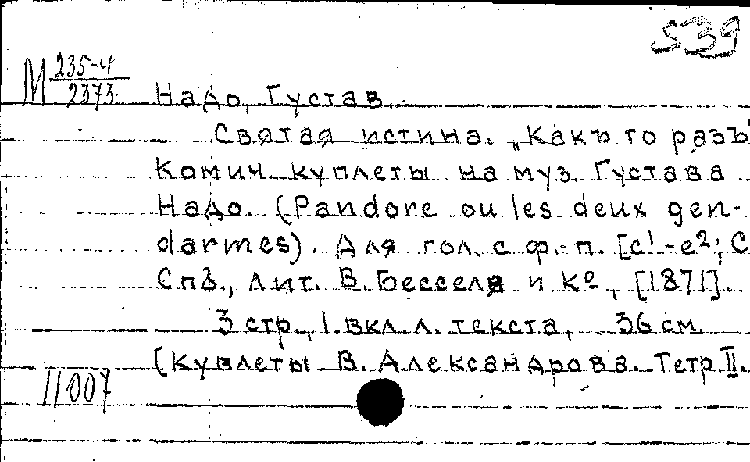 539
М 235-4
2373
Надо, Густав
Святая истина. „Какъ то разъ
Комич. куплеты на муз. Густава
Надо. (Pandore ou les deux gen-
darmes). Для гол. с ф.-п. [c¹-e²; C
Спб., лит. В. Бесселя и К⁰, [1871].
3 стр., 1 вкл. л. текста, 36 см
(Куплеты В. Александрова. Тетр. II.
11007